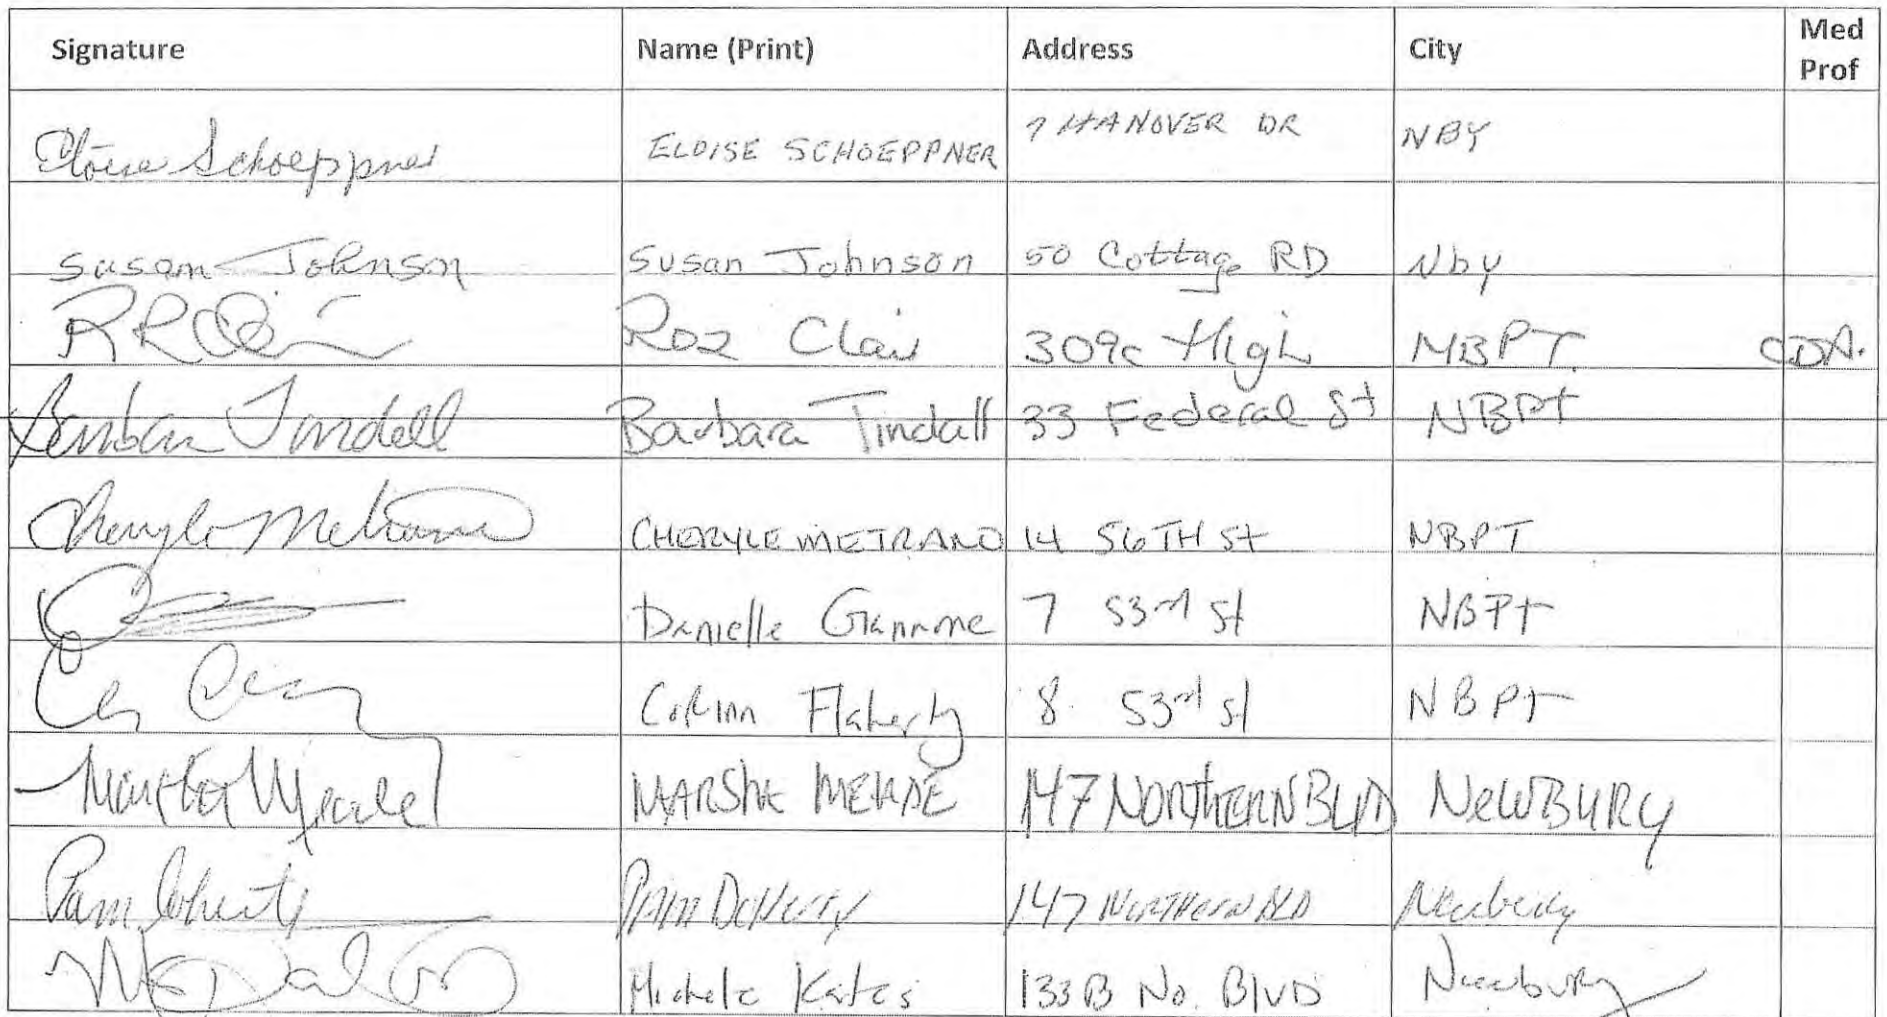 Signature Name (Print) Address City Med Prof
Eloise Schoeppner ELOISE SCHOEPPNER 7 HANOVER DR NBY
Susan Johnson Susan Johnson 50 Cottage RD Nby
Roz Clair 309c High NBPT CDA.
Barbara Tindall Barbara Tindall 33 Federal St NBPt
CHERYLE METRANO 14 56TH St NBPT
Danielle Giannone 7 53rd St NBPt
Corinn Flaherty 8 53rd St NBPt
Marsha Meade MARSHA MEADE 147 NORTHERN BLVD NEWBURY
Pam Doherty PAM DOHERTY 147 NORTHERN BLVD Newbury
Michele Kates 133B No. BLVD Newbury